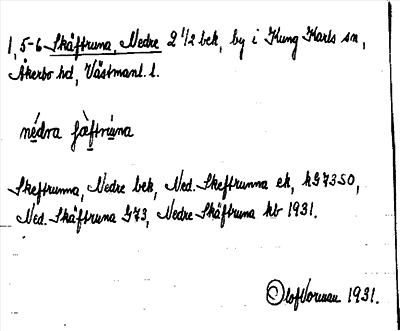 1,5-6 Skäftruna, Nedre 2 1/2 bek, by i Kung Karls sn,
Åkerbo hd, Västmanl. l.
nédra ʃæ̀ftrúna
Skeftrunna, Nedre bek, Ned. Skeftrunna ek, hG7350,
Ned. Skäftruna G73, Nedre Skäftruna kb 1931.
Olof Vorman 1931.